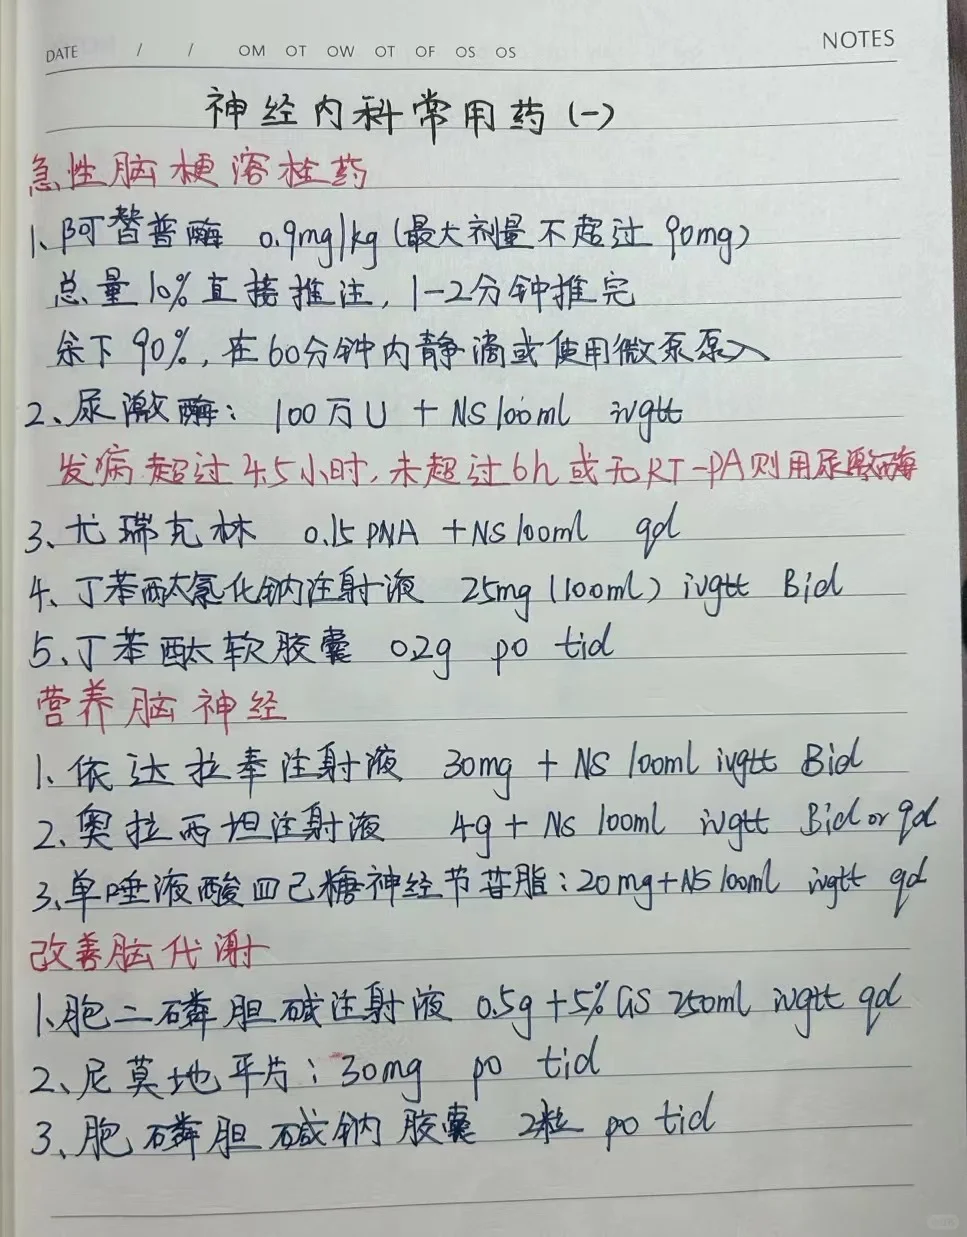 DATE / / OM OT OW OT OF OS OS NOTES
神经内科常用药(一)
急性脑梗溶栓药
1、阿替普酶 0.9mg/kg(最大剂量不超过90mg)
总量10%直接推注,1-2分钟推完
余下90%,在60分钟内静滴或使用微泵泵入
2、尿激酶: 100万U + NS 100ml ivgtt
发病超过4.5小时,未超过6h或无RT-PA则用尿激酶
3、尤瑞克林 0.15 PNA + NS 100ml qd
4、丁苯酞氯化钠注射液 25mg(100ml) ivgtt Bid
5、丁苯酞软胶囊 0.2g po tid
营养脑神经
1、依达拉奉注射液 30mg + NS 100ml ivgtt Bid
2、奥拉西坦注射液 4g + NS 100ml ivgtt Bid or qd
3、单唾液酸四己糖神经节苷脂:20mg+NS 100ml ivgtt qd
改善脑代谢
1、胞二磷胆碱注射液 0.5g+5%GS 250ml ivgtt qd
2、尼莫地平片:30mg po tid
3、胞磷胆碱钠胶囊 2粒 po tid